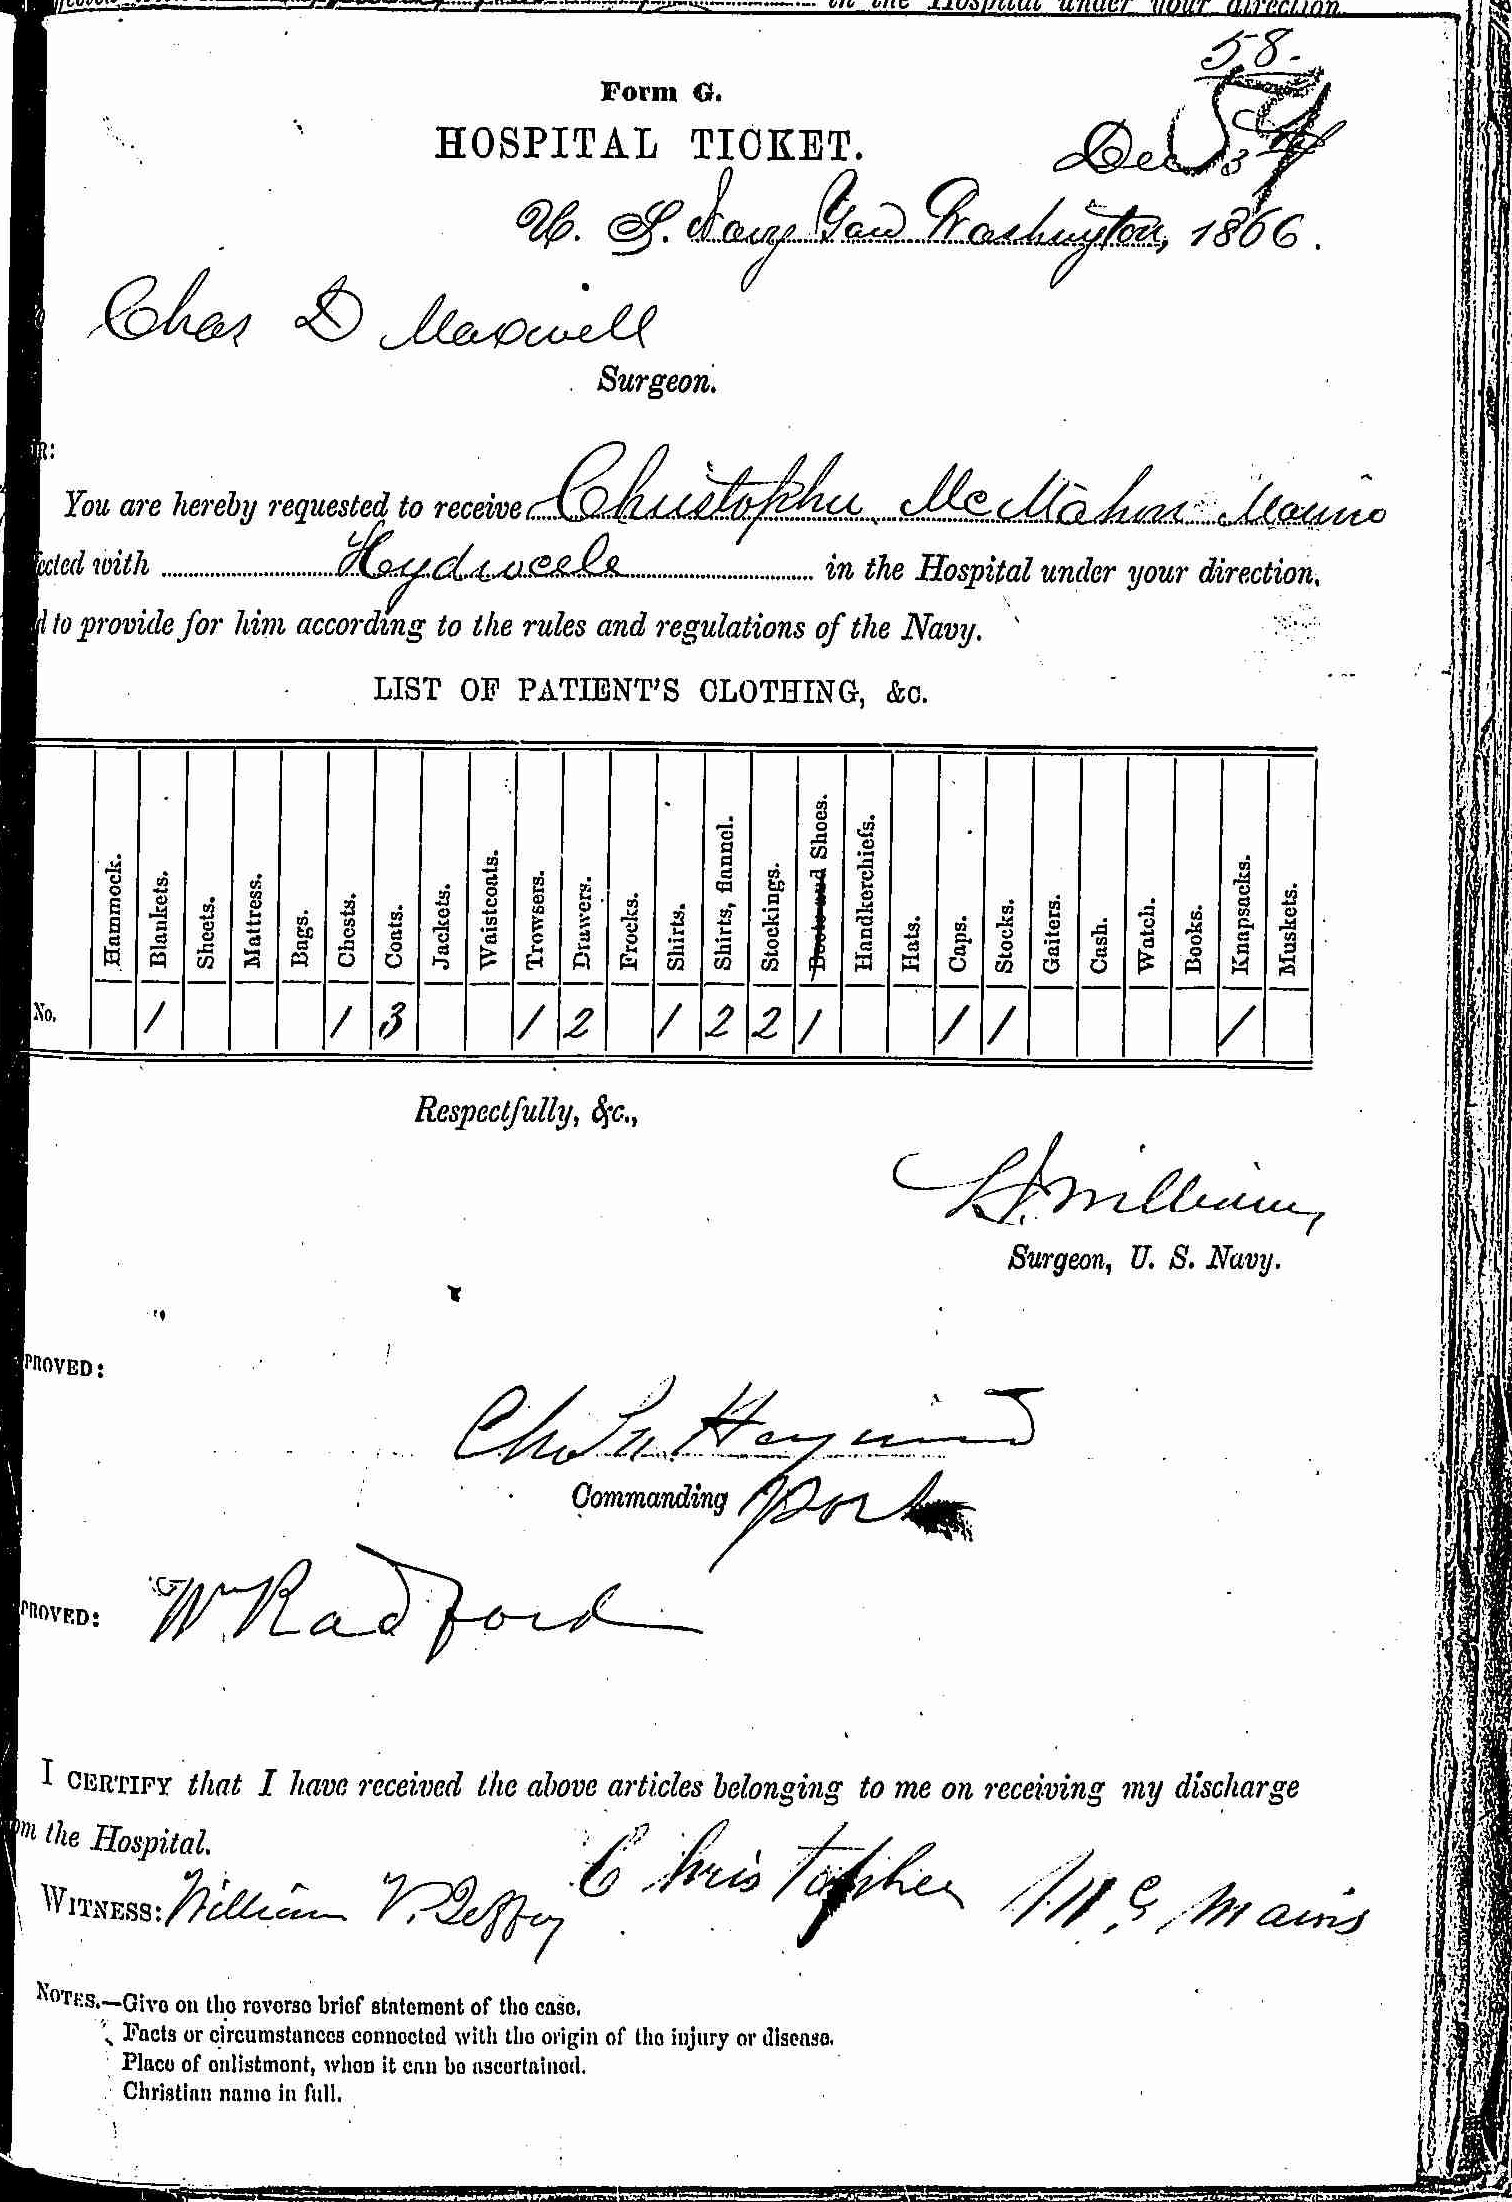 in the Hospital under your direction.
58.
Form G.
HOSPITAL TICKET.
Dec 3
U. S. Navy Yard Washington, 1866.
Chas D Maxwell
Surgeon.
R:
You are hereby requested to receive Christopher McMahon Marine
ected with Hydrocele in the Hospital under your direction,
d to provide for him according to the rules and regulations of the Navy.
LIST OF PATIENT'S CLOTHING, &C.
Hammock. Blankets. Sheets. Mattress. Bags. Chests. Coats. Jackets. Waistcoats. Trowsers. Drawers. Frocks. Shirts. Shirts, flannel. Stockings. Boots and Shoes. Handkerchiefs. Hats. Caps. Stocks. Gaiters. Cash. Watch. Books. Knapsacks. Muskets.
No. 1 1 3 1 2 1 2 2 1 1 1 1
Respectfully, &c.,
Williams
Surgeon, U. S. Navy.
PROVED:
Heywood
Commanding Post
PROVED: Wm Radford
I CERTIFY that I have received the above articles belonging to me on receiving my discharge
om the Hospital.
Christopher Mc
WITNESS: William V.
NOTES.—Give on the reverse brief statement of the case.
Facts or circumstances connected with the origin of the injury or disease.
Place of enlistment, when it can be ascertained.
Christian name in full.